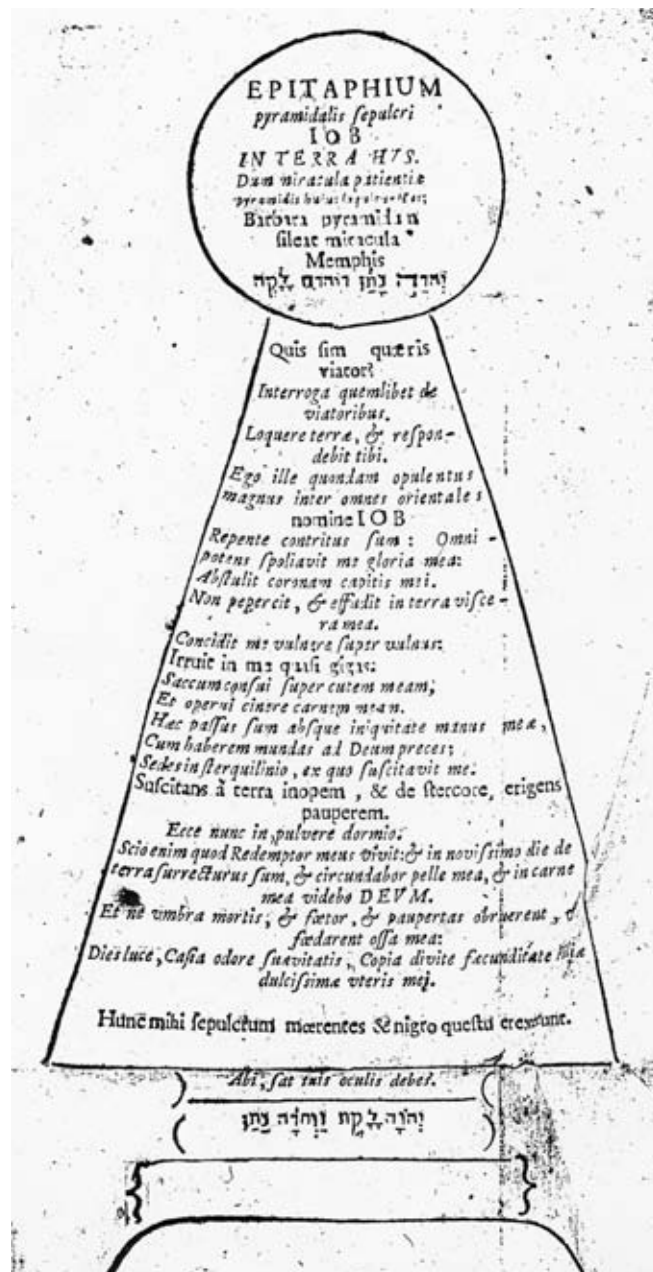 EPITAPHIUM
pyramidalis ſepulcri
IOB
IN TERRA HVS.
Dum miracula patientiæ
pyramidis huius
Barbara pyramidum
ſileat miracula
Memphis
יְהוָה נָתַן ויהוה לָקַח
Quis ſim quæris
viator?
Interroga quemlibet de
viatoribus.
Loquere terræ, & reſpon-
debit tibi.
Ego ille quondam opulentus
magnus inter omnes orientales
nomine IOB
Repente contritus ſum: Omni-
potens ſpoliavit me gloria mea:
Abſtulit coronam capitis mei.
Non pepercit, & effudit in terra viſce-
ra mea.
Concidit me vulnere ſuper vulnus:
Irruit in me quaſi gigas:
Saccum conſui ſuper cutem meam;
Et operui cinere carnem meam.
Hæc paſſus ſum abſque iniquitate manus meæ,
Cum haberem mundas ad Deum preces;
Sedes in ſterquilinio, ex quo ſuſcitavit me.
Suſcitans à terra inopem, & de ſtercore, erigens
pauperem.
Ecce nunc in pulvere dormio.
Scio enim quod Redemptor meus vivit: & in noviſſimo die de
terra ſurrecturus ſum, & circundabor pelle mea, & in carne
mea videbo DEVM.
Et ne vmbra mortis, & fœtor, & paupertas obruerent, &
fœdarent oſſa mea:
Dies luce, Caſia odore ſuavitatis, Copia divite fæcunditate filiæ
dulciſſimæ vteris mei.
Hunc mihi ſepulcrum mœrentes & nigro queſtu erexerunt.
Abi, ſat tuis oculis debes.
יְהוָה לָקַח וַיהוָה נָתַן